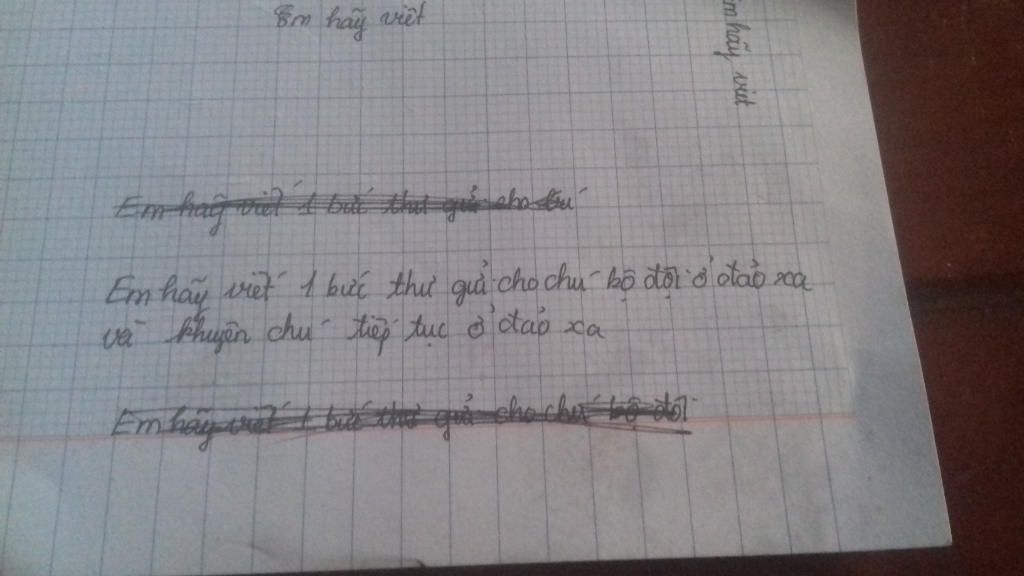 Em hãy viết
Em hãy viết
Em hãy viết 1 bức thư gửi cho
Em hãy viết 1 bức thư gửi cho chú bộ đội ở đảo xa
và khuyên chú tiếp tục ở đảo xa
Em hãy viết 1 bức thư gửi cho chú bộ đội